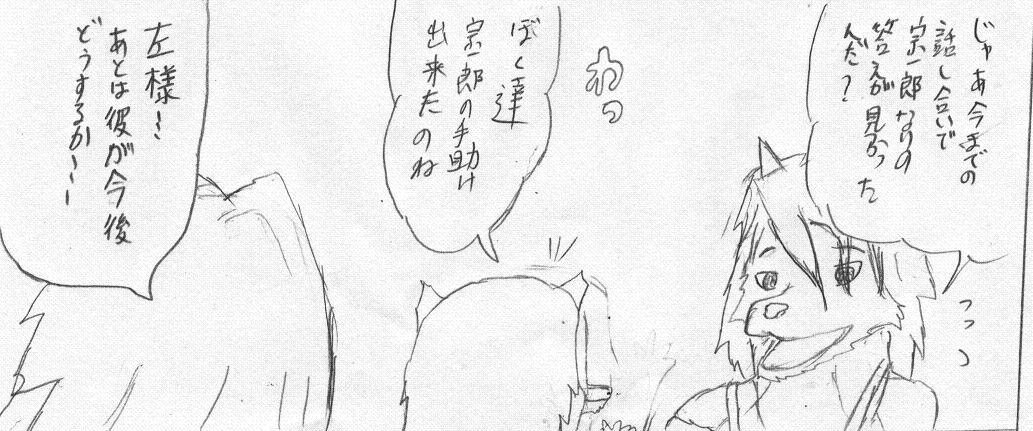 じゃあ今までの
話し合いで
宗一郎なりの
答えが見つかった
んだ？
わっ
ぼく達
宗一郎の手助け
出来たのね
左様…
あとは彼が今後
どうするか…